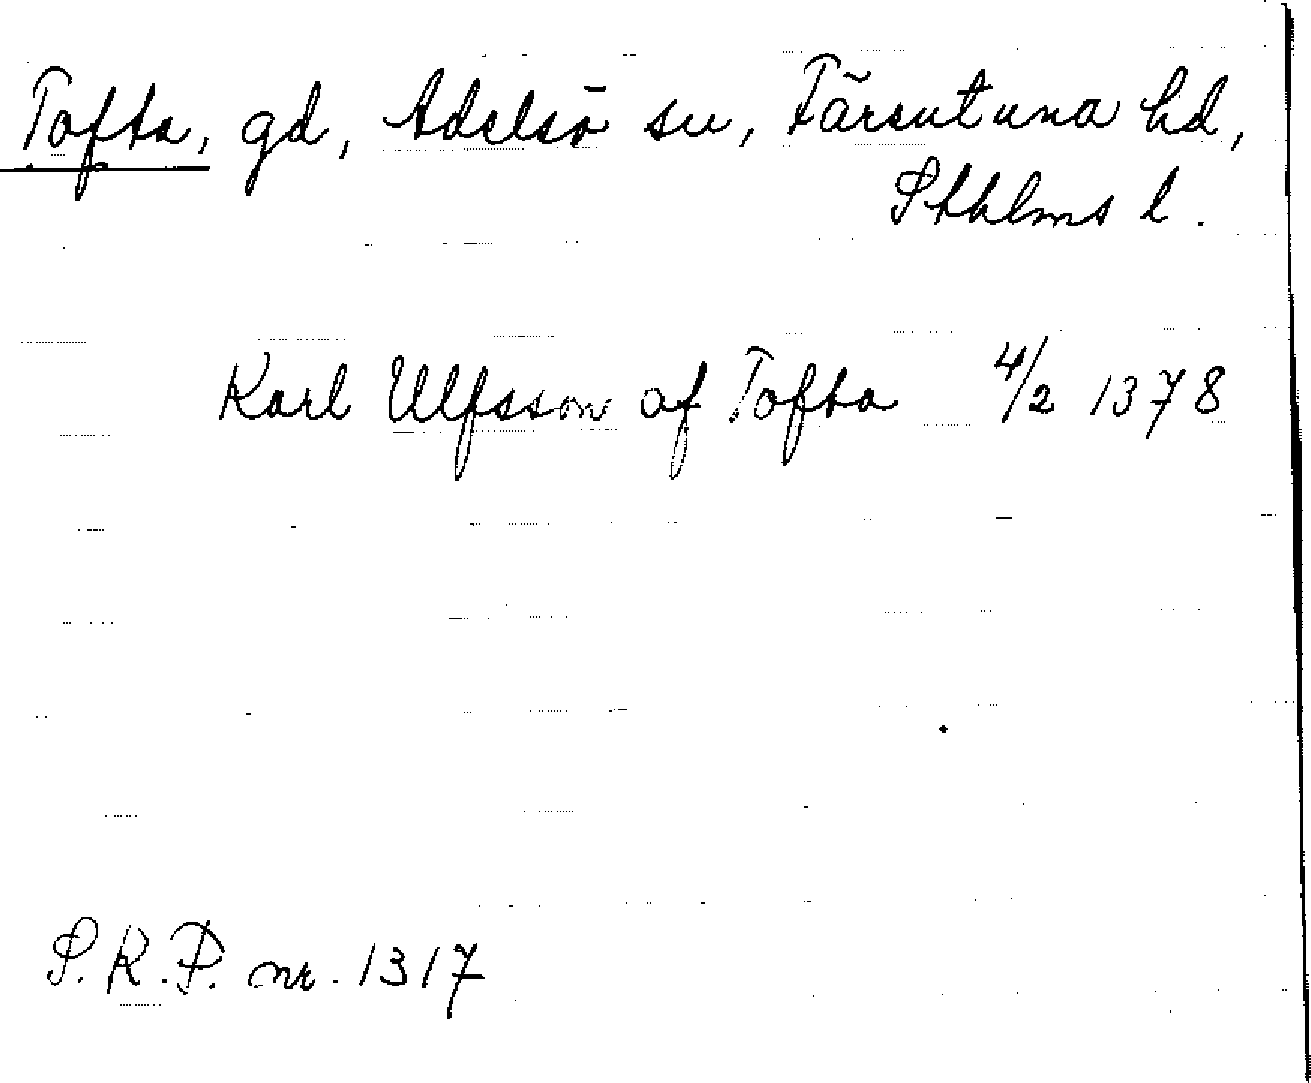 Tofta, gd, Adelsö sn, Färentuna hd,
Sthlms l.
Karl Ulfsson af Tofta 4/2 1378
S.R.P. nr. 1317